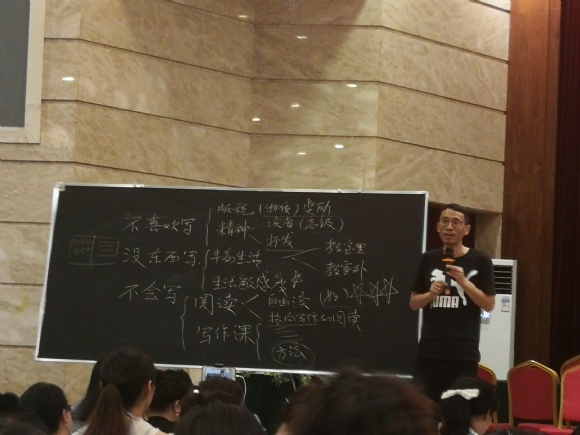 不喜欢写
精神
奖励
读者
教室里
没东西写
丰富生活
教室外
生活敏感度
不会写
阅读
自由读
指向写作的阅读
写作课
方法
PUMA